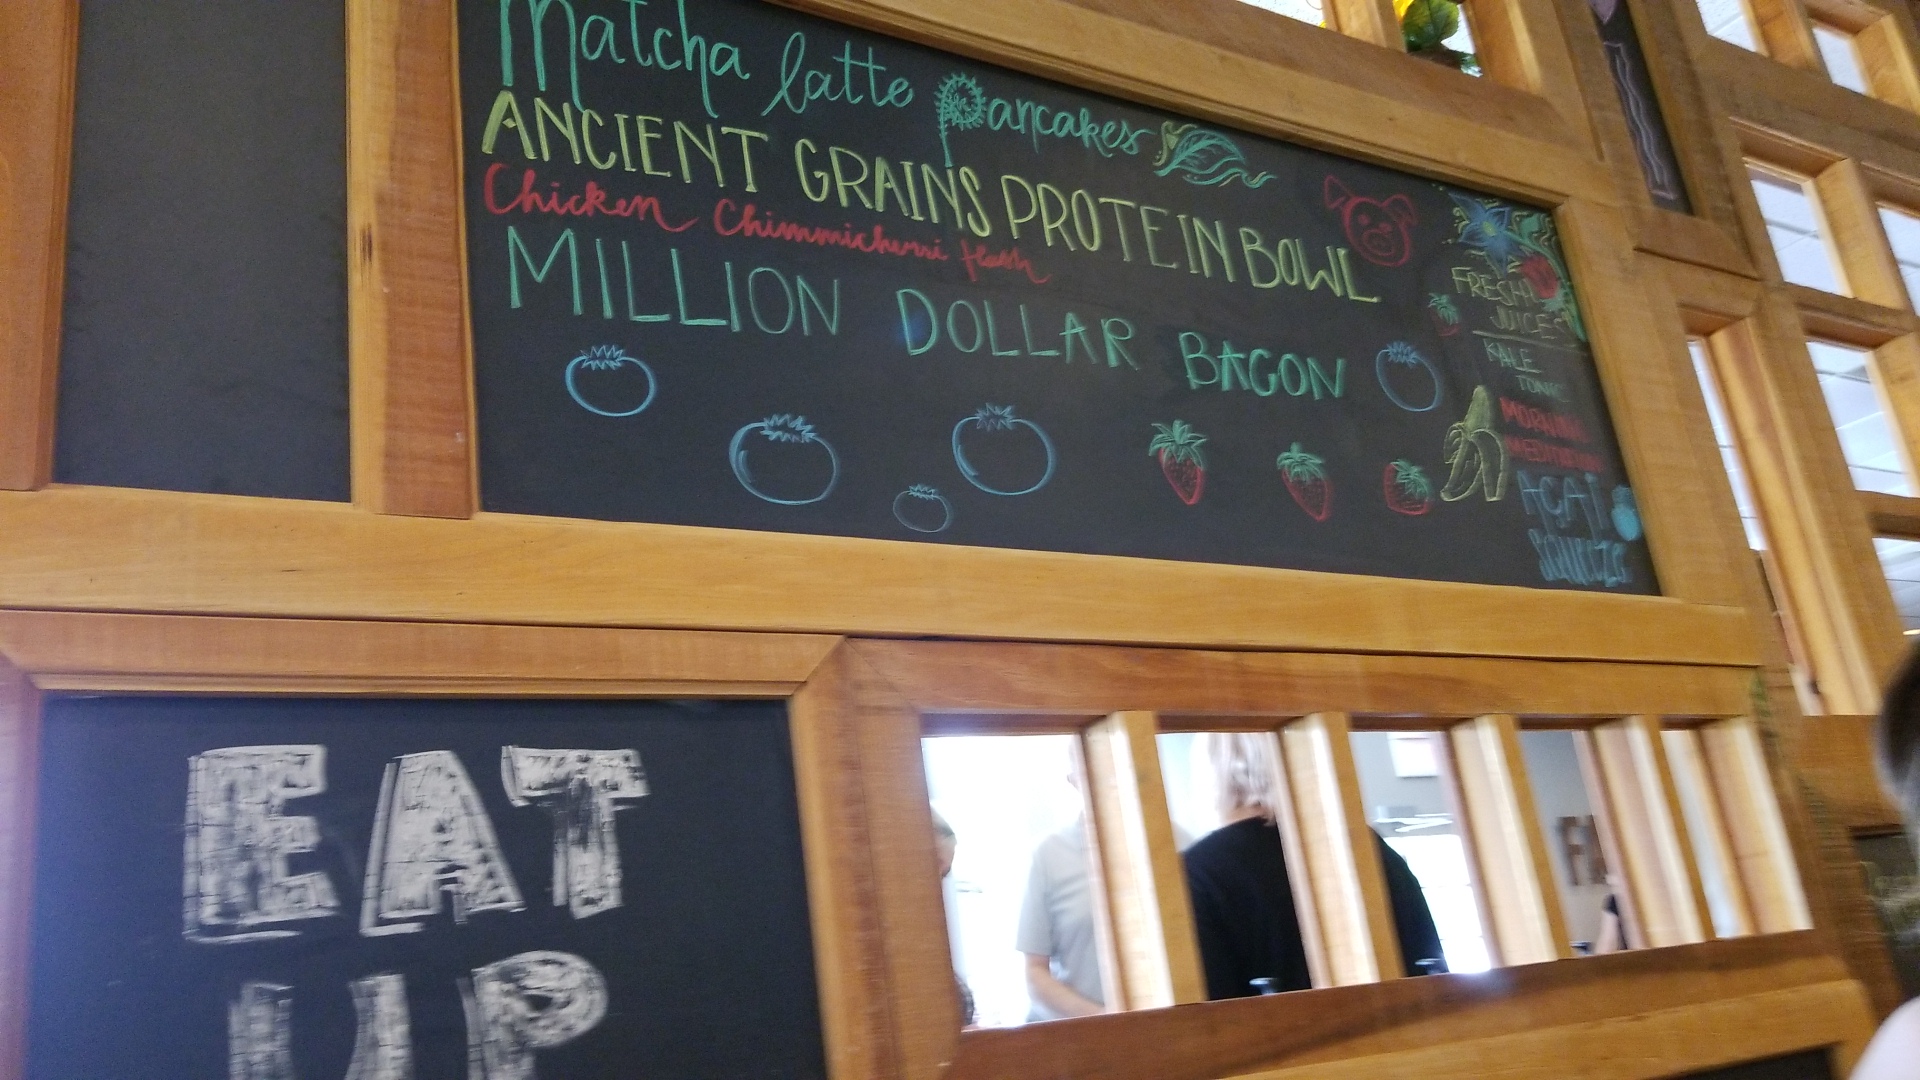 Matcha latte Pancakes
ANCIENT GRAINS PROTEIN BOWL
Chicken Chimmichurri Hash
MILLION DOLLAR BACON
FRESH
JUICES
KALE
TONIC
MORNING
MEDITATION
AÇAI
SQUEEZE
EAT
UP